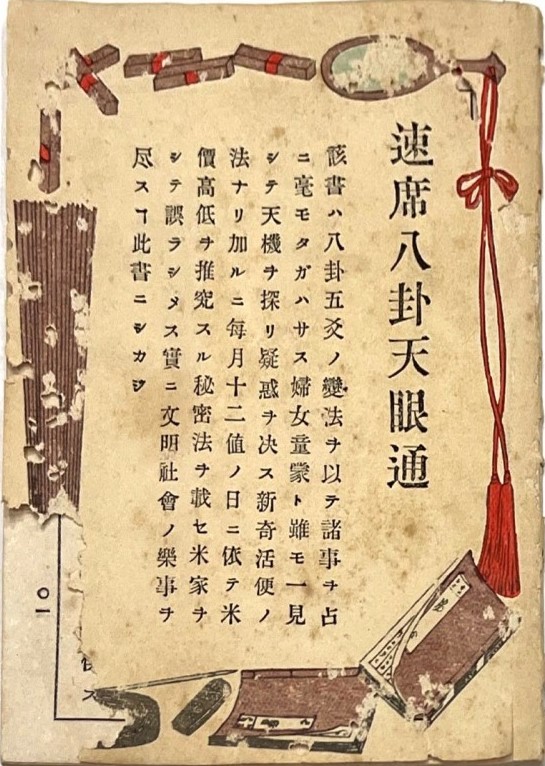 速席八卦天眼通
該書ハ八卦五爻ノ變法ヲ以テ諸事ヲ占
ニ毫モタガハサス婦女童蒙ト雖モ一見
シテ天機ヲ探リ疑惑ヲ决ス新奇活便ノ
法ナリ加ルニ每月十二値ノ日ニ依テ米
價高低ヲ推究スル秘密法ヲ載セ米家ヲ
シテ誤ラシメス實ニ文明社會ノ樂事ヲ
尽スヿ此書ニシカジ
一〇
ス